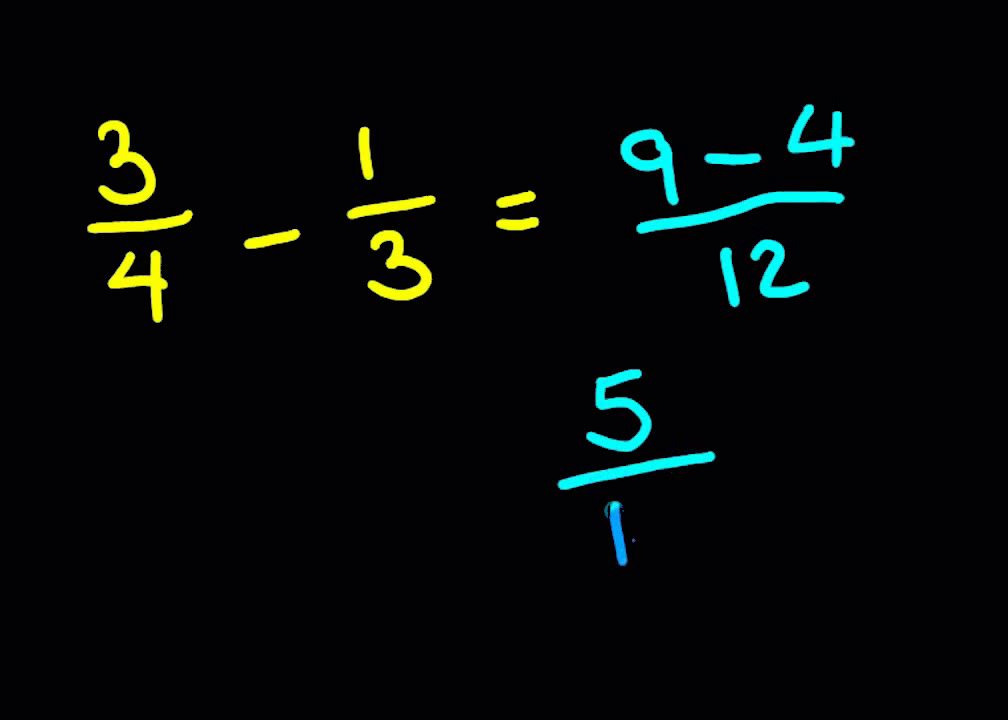 3/4 - 1/3 = (9 - 4)/12
5/1